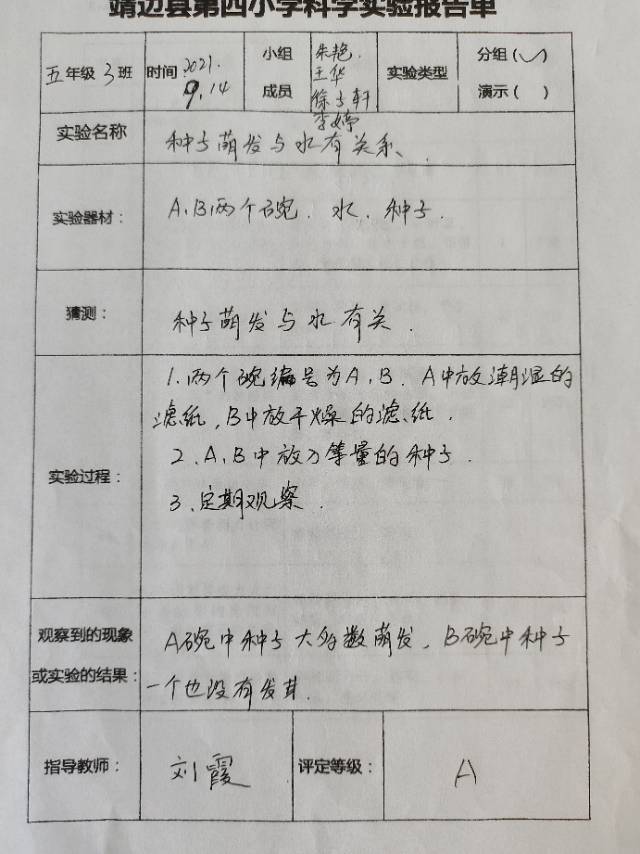 靖边县第四小学科学实验报告单
五年级 3 班 时间 2021. 9.14 小组成员 朱艳. 王华 徐子轩 李婷 实验类型 分组 (✓) 演示 ( )
实验名称 种子萌发与水有关系、.
实验器材: A、B两个碗. 水. 种子.
猜测: 种子萌发与水有关.
实验过程: 1.两个碗编号为A,B. A中放潮湿的
滤纸,B中放干燥的滤纸.
2.A,B中放入等量的种子.
3.定期观察.
观察到的现象 A碗中种子大多数萌发,B碗中种子
或实验的结果: 一个也没有发芽.
指导教师: 刘霞 评定等级: A